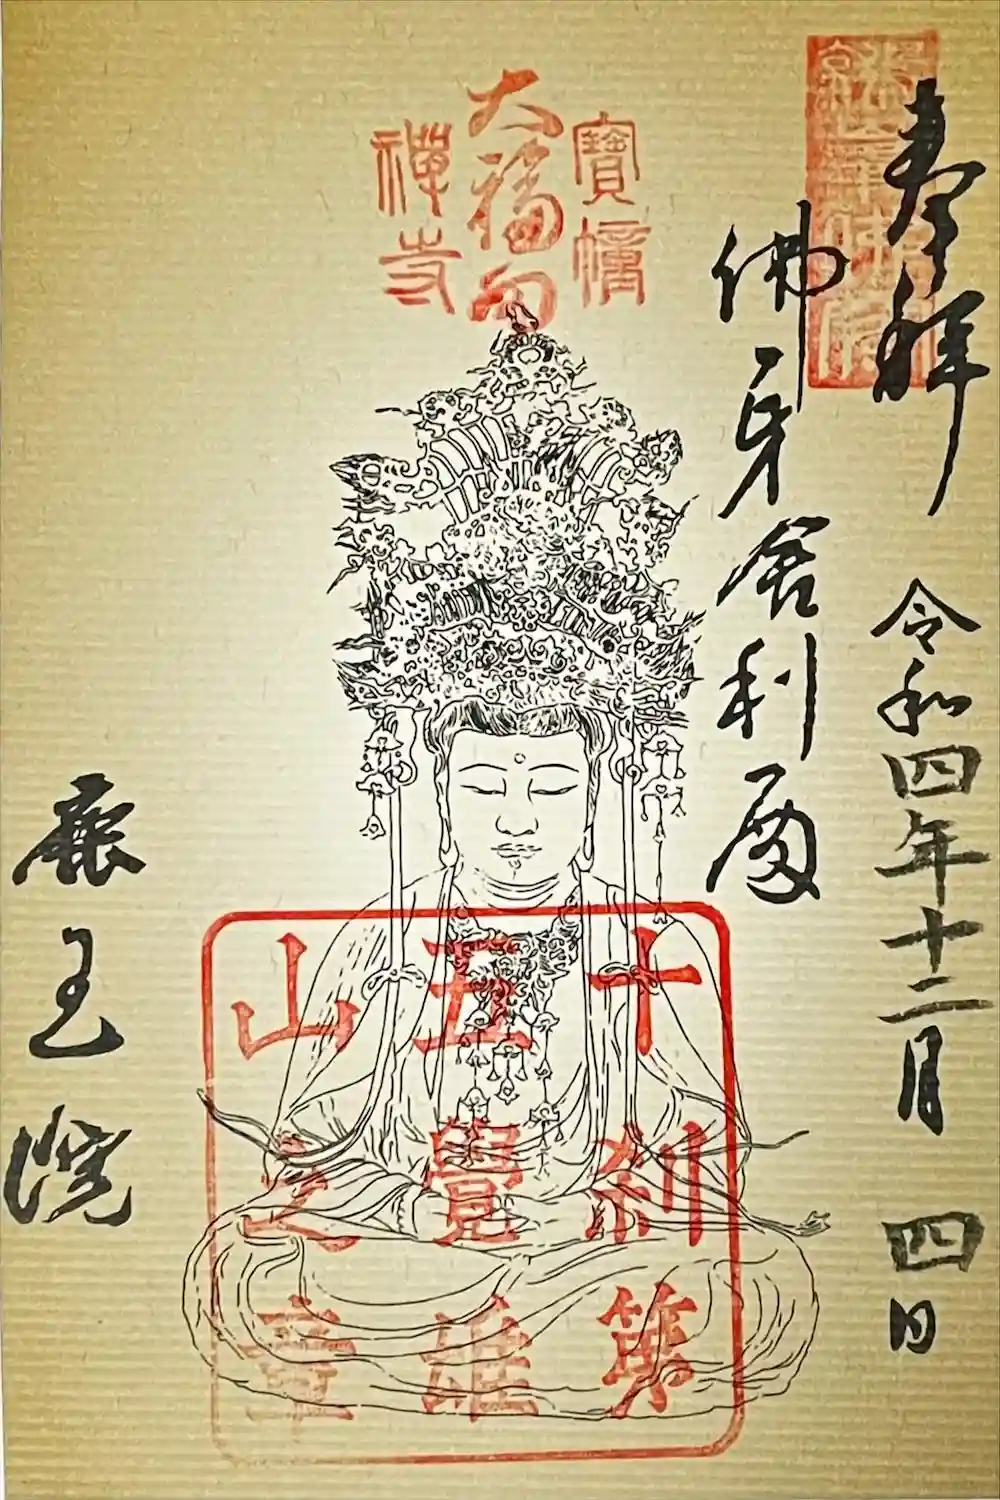 奉拝 令和四年十二月四日
佛牙舎利殿
寶幢
大福田
禪寺
十刹第
五覺雄
山之章
鹿王院